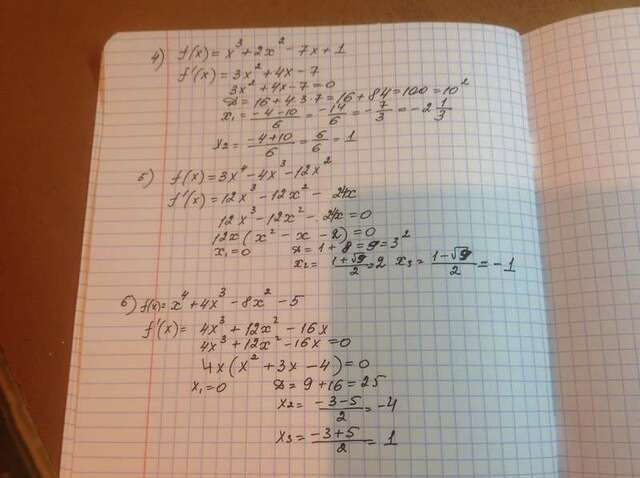 4) f(x) = x³ + 2x² - 7x + 1
f'(x) = 3x² + 4x - 7
3x² + 4x - 7 = 0
D = 16 + 4·3·7 = 16 + 84 = 100 = 10²
x₁ = (-4-10)/6 = -14/6 = -7/3 = -2 1/3
x₂ = (-4+10)/6 = 6/6 = 1
5) f(x) = 3x⁴ - 4x³ - 12x²
f'(x) = 12x³ - 12x² - 24x
12x³ - 12x² - 24x = 0
12x(x² - x - 2) = 0
x₁ = 0 D = 1 + 8 = 9 = 3²
x₂ = (1+√9)/2 = 2 x₃ = (1-√9)/2 = -1
6) f(x) = x⁴ + 4x³ - 8x² - 5
f'(x) = 4x³ + 12x² - 16x
4x³ + 12x² - 16x = 0
4x(x² + 3x - 4) = 0
x₁ = 0 D = 9 + 16 = 25
x₂ = (-3-5)/2 = -4
x₃ = (-3+5)/2 = 1